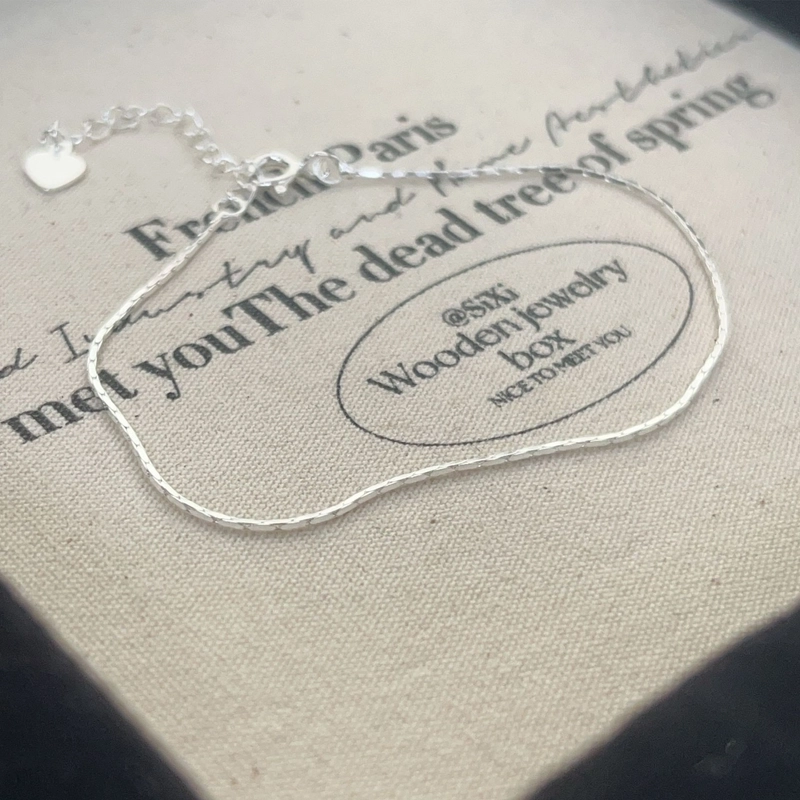 French Paris
d Industry and Home Aesthetics
met youThe dead tree of spring
@SiXi
Wooden jewelry
box
NICE TO MEET YOU